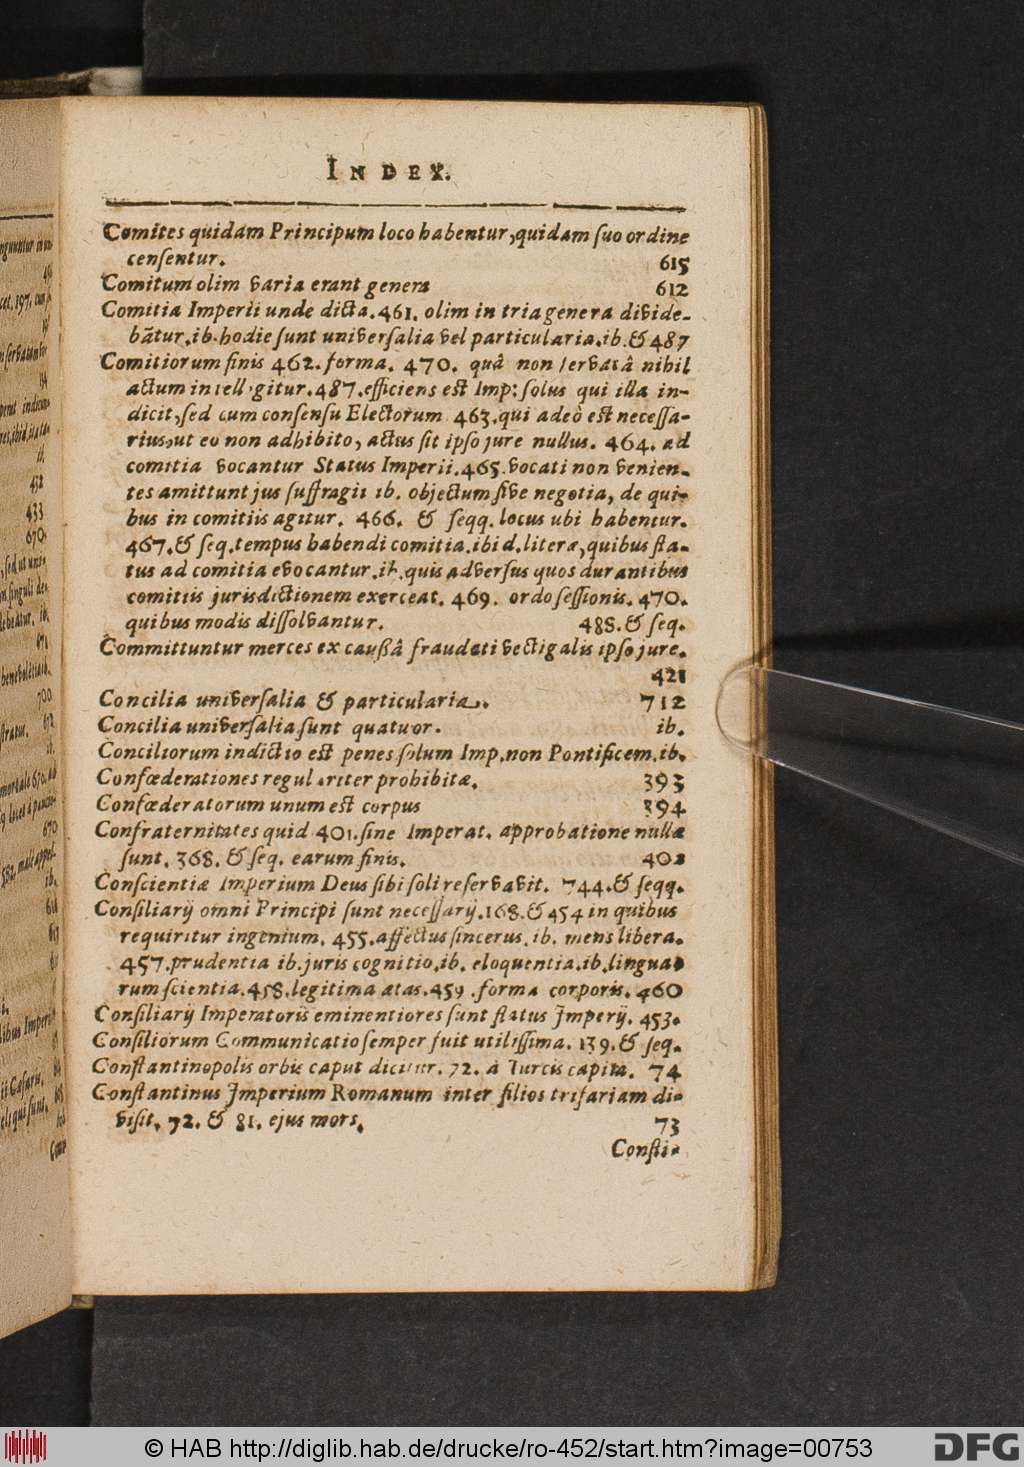 INDEX.
Comites quidam Principum loco habentur, quidam ſuo ordine
cenſentur. 615
Comitum olim varia erant genera 612
Comitia Imperii unde dicta. 461. olim in tria genera divide-
bãtur. ib. hodie ſunt univerſalia vel particularia. ib. & 487
Comitiorum finis 462. forma. 470. quâ non ſervatâ nihil
actum intelligitur. 487. efficiens eſt Imp: ſolus qui illa in-
dicit, ſed cum conſenſu Electorum 463. qui adeò eſt neceſſa-
rius, ut eo non adhibito, actus ſit ipſo jure nullus. 464. ad
comitia vocantur Status Imperii. 465. vocati non venien-
tes amittunt jus ſuffragii ib. objectum ſive negotia, de qui-
bus in comitiis agitur. 466. & ſeqq. locus ubi habentur.
467. & ſeq. tempus habendi comitia. ibid. literæ, quibus ſta-
tus ad comitia evocantur. ib. quis adverſus quos durantibus
comitiis jurisdictionem exerceat. 469. ordo ſeſſionis. 470.
quibus modis diſſolvantur. 488. & ſeq.
Committuntur merces ex cauſſâ fraudati vectigalis ipſo jure.
421
Concilia univerſalia & particularia. 712
Concilia univerſalia ſunt quatuor. ib.
Conciliorum indictio eſt penes ſolum Imp. non Pontificem. ib.
Confœderationes regulariter prohibitæ. 393
Confœderatorum unum eſt corpus 394
Confraternitates quid 401. ſine Imperat. approbatione nullæ
ſunt. 368. & ſeq. earum finis. 402
Conſcientiæ Imperium Deus ſibi ſoli reſervavit. 744. & ſeqq.
Conſiliarij omni Principi ſunt neceſſarij. 168. & 454 in quibus
requiritur ingenium. 455. affectus ſincerus. ib. mens libera.
457. prudentia ib. juris cognitio. ib. eloquentia. ib. lingua-
rum ſcientia. 458. legitima ætas. 459. forma corporis. 460
Conſiliarij Imperatoris eminentiores ſunt ſtatus Imperij. 453.
Conſiliorum Communicatio ſemper fuit utiliſſima. 139. & ſeq.
Conſtantinopolis orbis caput dicitur. 72. à Turcis capita. 74
Conſtantinus Imperium Romanum inter filios trifariam di-
viſit. 72. & 81. ejus mors. 73
Conſti-
© HAB http://diglib.hab.de/drucke/ro-452/start.htm?image=00753
DFG